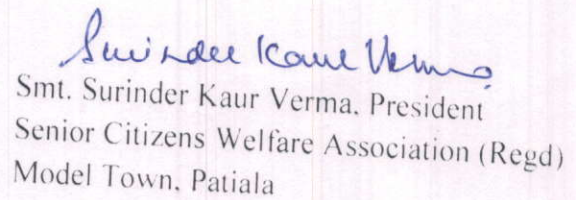 Surinder Kaur Verma
Smt. Surinder Kaur Verma, President
Senior Citizens Welfare Association (Regd)
Model Town, Patiala